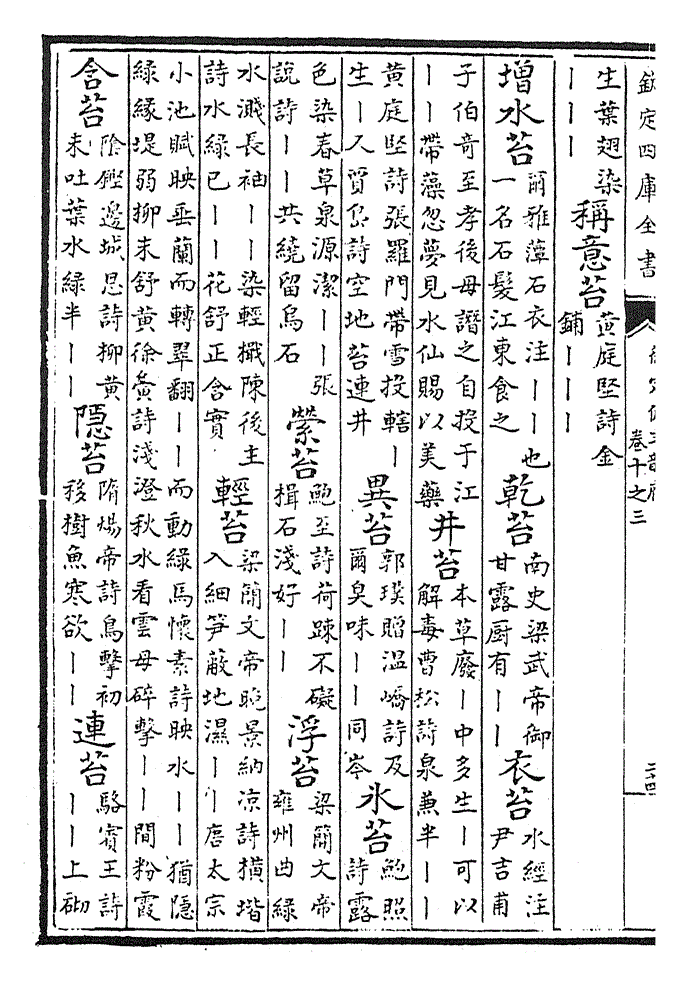 欽定四庫全書
卷十之三
生葉翅染
｜｜｜
稱意苔
黃庭堅詩金
鋪｜｜｜
增水苔
爾雅藫石衣注｜｜也
一名石髮江東食之
乾苔
南史梁武帝御
甘露厨有｜｜
衣苔
水經注
尹吉甫
子伯奇至孝後母譖之自投于江
｜｜帶藻忽夢見水仙賜以美藥
井苔
本草廢｜中多生｜可以
解毒曹松詩泉兼半｜｜
黃庭堅詩張羅門帶雪投轄｜
生｜又賈島詩空地苔連井
異苔
郭璞贈溫嶠詩及
爾臭味｜｜同岑
氷苔
鮑照
詩露
色染春草泉源潔｜｜張
說詩｜｜共繞留烏石
縈苔
鮑至詩荷疎不礙
楫石淺好｜｜
浮苔
梁簡文帝
雍州曲綠
水濺長袖｜｜染輕檝陳後主
詩水綠已｜｜花舒正含實
輕苔
梁簡文帝晚景納凉詩橫堦
入細笋蔽地濕｜｜唐太宗
小池賦映垂蘭而轉翠翻｜｜而動綠馬懷素詩映水｜｜猶隱
綠緣堤弱柳未舒黃徐夤詩淺澄秋水看雲母碎擊｜｜間粉霞
含苔
陰鏗邊城思詩柳黃
未吐葉水綠半｜｜
隱苔
隋煬帝詩鳥擊初
移樹魚寒欲｜｜
連苔
駱賓王詩
｜｜上砌